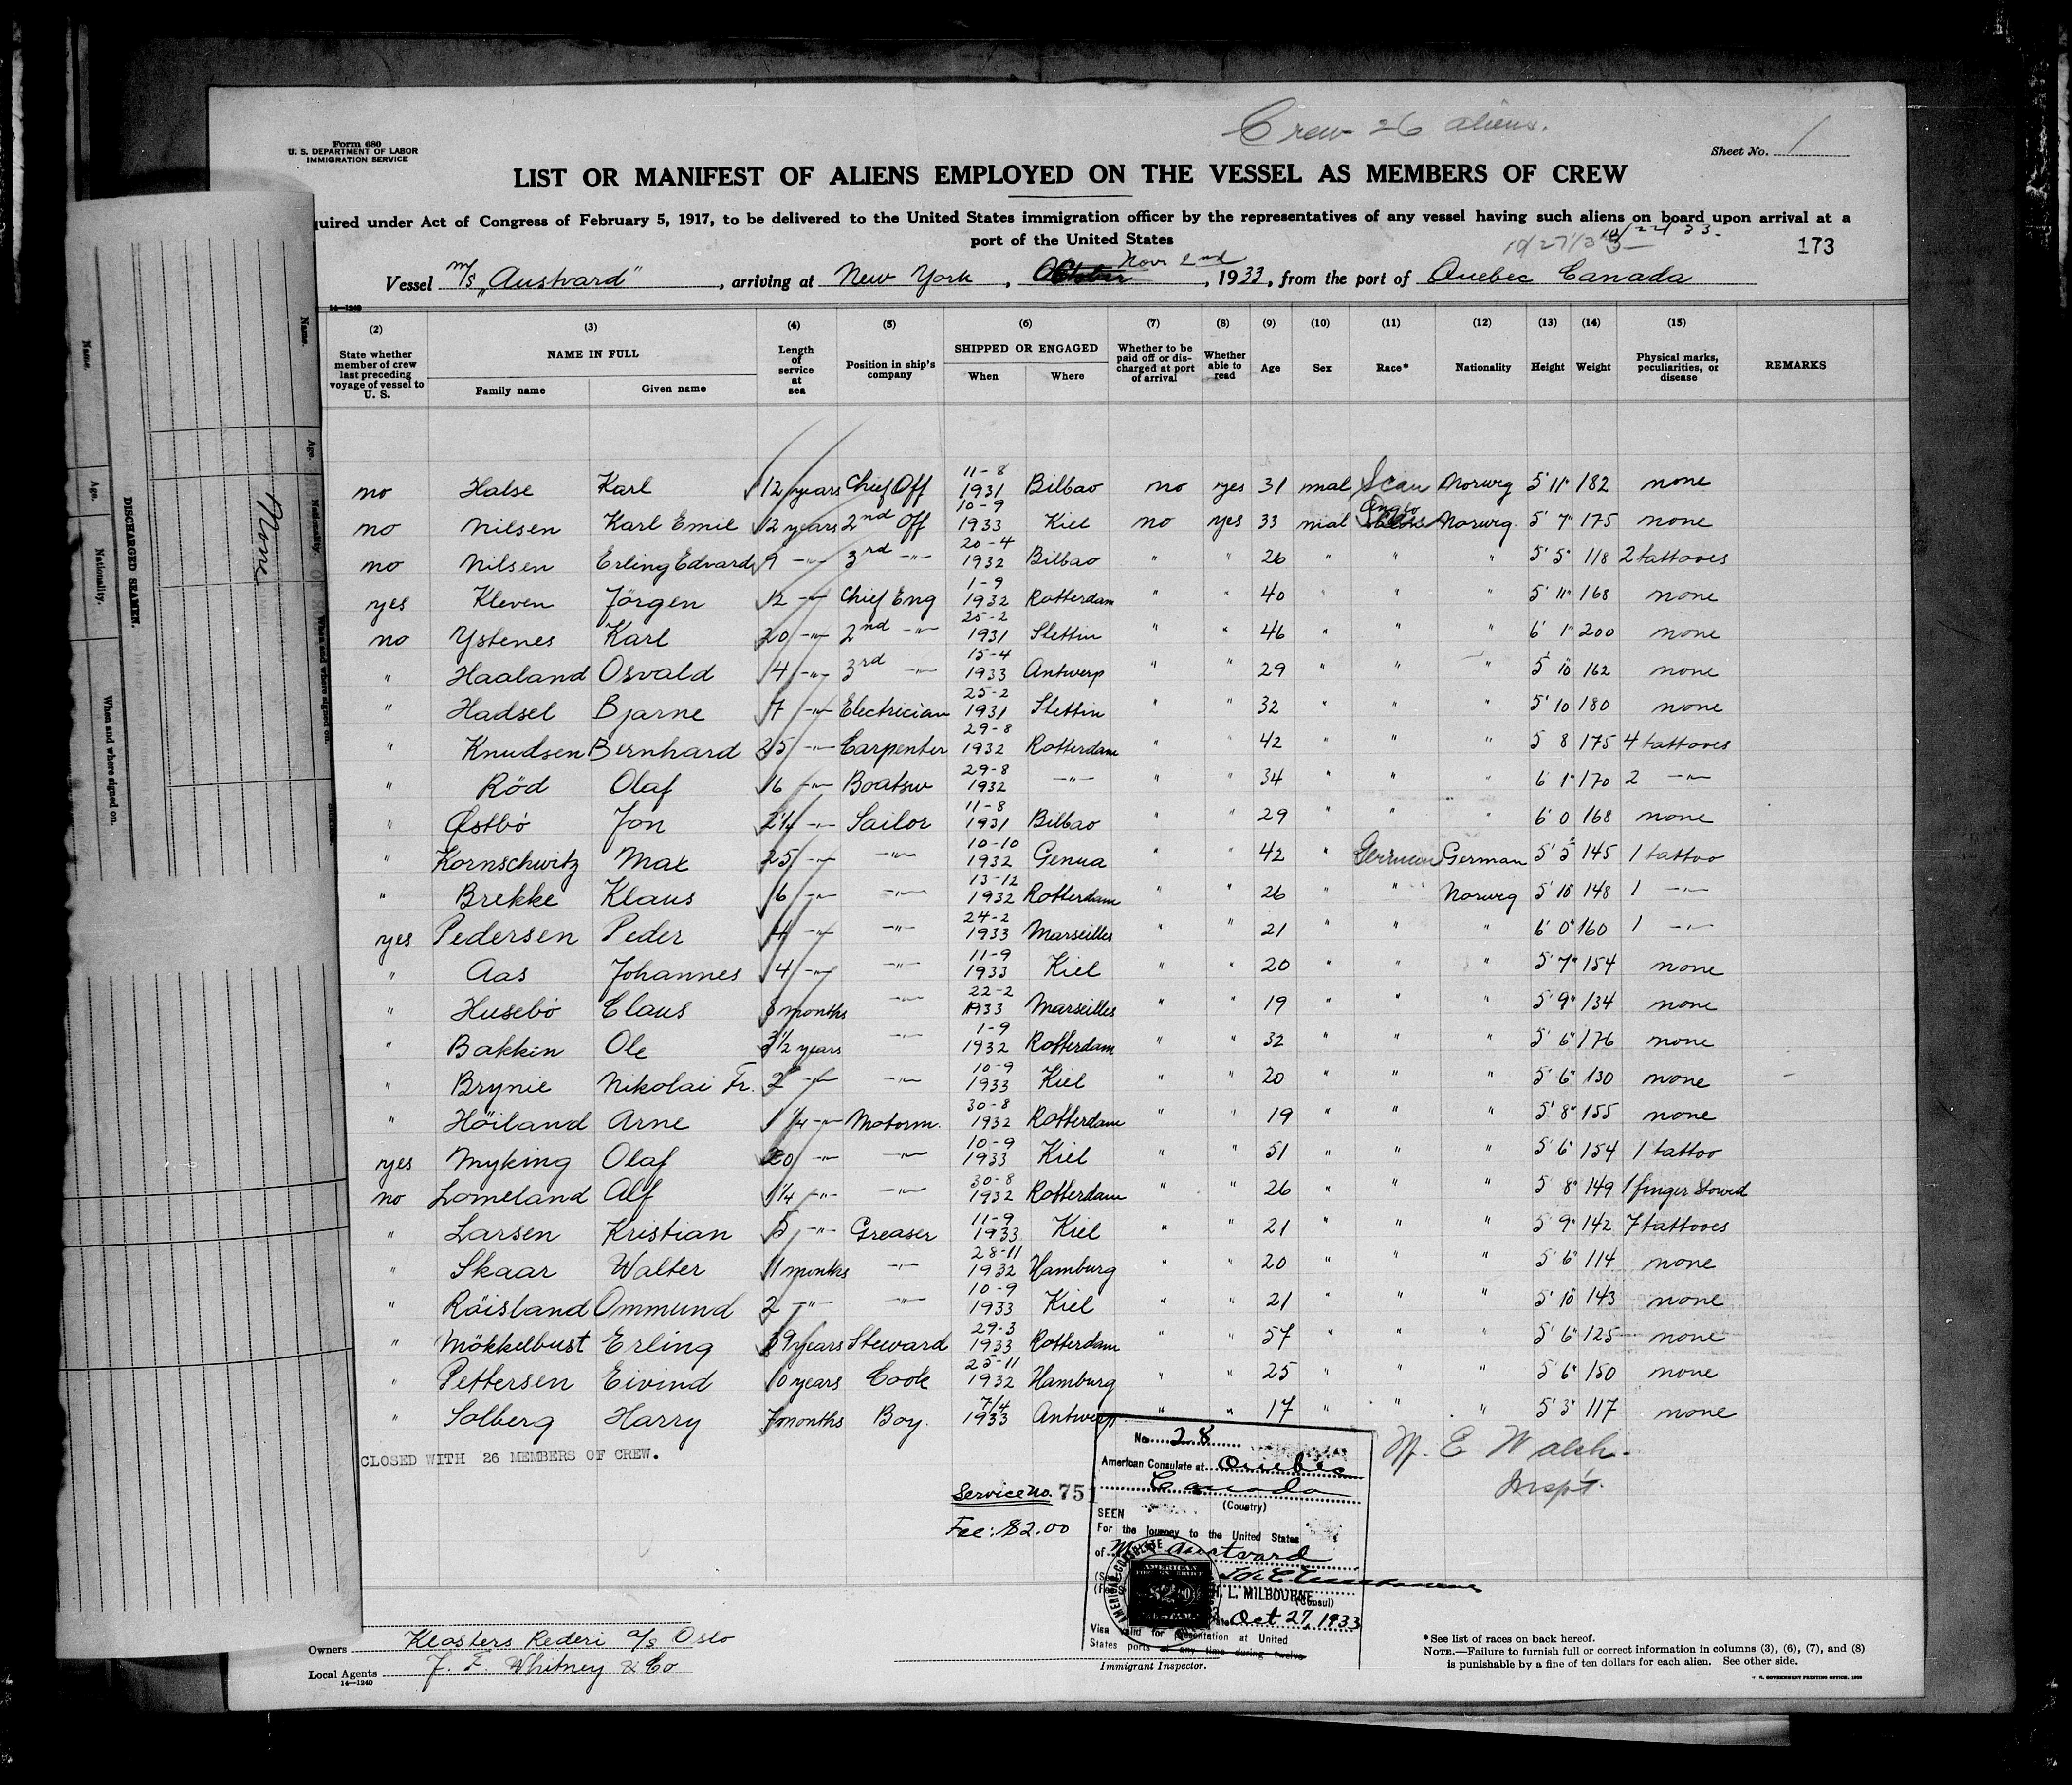 Crew 26 aliens.
Form 680
U. S. DEPARTMENT OF LABOR
IMMIGRATION SERVICE
Sheet No. 1
LIST OR MANIFEST OF ALIENS EMPLOYED ON THE VESSEL AS MEMBERS OF CREW
quired under Act of Congress of February 5, 1917, to be delivered to the United States immigration officer by the representatives of any vessel having such aliens on board upon arrival at a
port of the United States
173
Vessel m/s „Austvard", arriving at New York, October Nov 2nd, 1933, from the port of Quebec Canada
14—1240
(2) (3) (4) (5) (6) (7) (8) (9) (10) (11) (12) (13) (14) (15)
State whether member of crew last preceding voyage of vessel to U. S. NAME IN FULL Family name Given name Length of service at sea Position in ship's company SHIPPED OR ENGAGED When Where Whether to be paid off or discharged at port of arrival Whether able to read Age Sex Race* Nationality Height Weight Physical marks, peculiarities, or disease REMARKS
no Halse Karl 12 years Chief Off 11-8 1931 Bilbao no yes 31 mal Scan Norwg 5' 11" 182 none
no Nilsen Karl Emil 12 years 2nd Off 10-9 1933 Kiel no yes 33 mal Norwg. 5' 7" 175 none
no Nilsen Erling Edvard 9 -"- 3rd -"- 20-4 1932 Bilbao " " 26 " " " 5' 5" 118 2 tattooes
yes Kleven Jörgen 12 -"- Chief Eng 1-9 1932 Rotterdam " " 40 " " " 5' 11" 168 none
no Ystenes Karl 20 -"- 2nd -"- 25-2 1931 Stettin " " 46 " " " 6' 1" 200 none
" Haaland Osvald 4 -"- 3rd -"- 15-4 1933 Antwerp " " 29 " " " 5' 10 162 none
" Hadsel Bjarne 7 -"- Electrician 25-2 1931 Stettin " " 32 " " " 5' 10 180 none
" Knudsen Bernhard 25 -"- Carpenter 29-8 1932 Rotterdam " " 42 " " " 5 8 175 4 tattooes
" Röd Olaf 16 -"- Boatsw 29-8 1932 -"- " " 34 " " " 6' 1" 170 2 -"-
" Östbö Jon 2¼ -"- Sailor 11-8 1931 Bilbao " " 29 " " " 6' 0 168 none
" Kornschwitz Max 25 -"- -"- 10-10 1932 Genua " " 42 " German German 5' 5" 145 1 tattoo
" Brekke Klaus 6 -"- -"- 13-12 1932 Rotterdam " " 26 " " Norwg 5' 10" 148 1 -"-
yes Pedersen Peder 4 -"- -"- 24-2 1933 Marseilles " " 21 " " " 6' 0" 160 1 -"-
" Aas Johannes 4 -"- -"- 11-9 1933 Kiel " " 20 " " " 5' 7" 154 none
" Husebö Claus 8 months -"- 22-2 1933 Marseilles " " 19 " " " 5' 9" 134 none
" Bakkin Ole 3½ years -"- 1-9 1932 Rotterdam " " 32 " " " 5' 6" 176 none
" Brynie Nikolai Fr. 2 -"- -"- 10-9 1933 Kiel " " 20 " " " 5' 6" 130 none
" Höiland Arne 1¼ -"- Motorm. 30-8 1932 Rotterdam " " 19 " " " 5' 8" 155 none
yes Myking Olaf 20 -"- -"- 10-9 1933 Kiel " " 51 " " " 5' 6" 154 1 tattoo
no Lomeland Alf 1¼ -"- -"- 30-8 1932 Rotterdam " " 26 " " " 5 8" 149 1 finger
" Larsen Kristian 5 -"- Greaser 11-9 1933 Kiel " " 21 " " " 5' 9" 142 7 tattooes
" Skaar Walter 11 months -"- 28-11 1932 Hamburg " " 20 " " " 5' 6" 114 none
" Röisland Ommund 2 -"- -"- 10-9 1933 Kiel " " 21 " " " 5' 10" 143 none
" Mökkelbust Erling 39 years Steward 29-3 1933 Rotterdam " " 57 " " " 5' 6" 125 none
" Pettersen Eivind 10 years Cook 25-11 1932 Hamburg " " 25 " " " 5' 6" 150 none
" Solberg Harry 7 months Boy. 7/4 1933 Antwerp " " 17 " " " 5' 3" 117 none
CLOSED WITH 26 MEMBERS OF CREW.
M. E Walsh.
Inspt.
Service no. 751
Fee: $2.00
No. 28
American Consulate at Quebec
Canada
(Country)
SEEN
For the journey to the United States
of M/s Austvard
H. L. MILBOURNE
(Consul)
Oct 27, 1933
Visa valid for presentation at United
States ports at any time during twelve
Immigrant Inspector.
Owners Klosters Rederi a/s Oslo
Local Agents J. F. Whitney & Co
14—1240
*See list of races on back hereof.
NOTE.—Failure to furnish full or correct information in columns (3), (6), (7), and (8)
is punishable by a fine of ten dollars for each alien. See other side.
DISCHARGED SEAMEN.
Name.
Age.
Nationality.
When and where signed on.
None